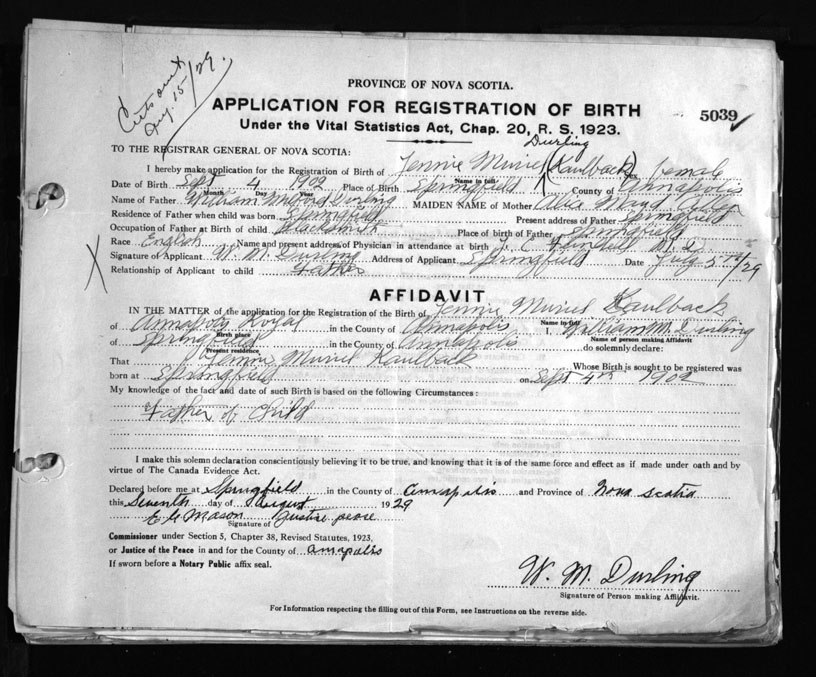 Cert sent
Aug. 15-/29.
PROVINCE OF NOVA SCOTIA.
APPLICATION FOR REGISTRATION OF BIRTH
5039
Under the Vital Statistics Act, Chap. 20, R. S. 1923.
Durling
TO THE REGISTRAR GENERAL OF NOVA SCOTIA:
I hereby make application for the Registration of Birth of Jennie Muriel (Kaulback) female
Name in full
Date of Birth Sept 4 1902 Place of Birth Springfield County of Annapolis
Month Day Year
Name of Father William Milford Durling MAIDEN NAME of Mother Maud
Residence of Father when child was born Springfield Present address of Father Springfield
Occupation of Father at Birth of child Blacksmith Place of birth of Father Springfield
Race English Name and present address of Physician in attendance at birth M. D.
Signature of Applicant W. M. Durling Address of Applicant Springfield Date
Relationship of Applicant to child Father
X
AFFIDAVIT
IN THE MATTER of the application for the Registration of the Birth of Jennie Muriel Kaulback
Name in full
of Annapolis Royal in the County of Annapolis I, William M. Durling
Birth place Name of person making Affidavit
of Springfield in the County of Annapolis do solemnly declare:
Present residence
That Jennie Muriel Kaulback Whose Birth is sought to be registered was
born at Springfield on Sept 4th 1902
My knowledge of the fact and date of such Birth is based on the following Circumstances:
Father of Child
I make this solemn declaration conscientiously believing it to be true, and knowing that it is of the same force and effect as if made under oath and by
virtue of The Canada Evidence Act.
Declared before me at Springfield in the County of Annapolis and Province of Nova Scotia
this Seventh day of August 1929
E G Mason Justice peace
Signature of
Commissioner under Section 5, Chapter 38, Revised Statutes, 1923,
or Justice of the Peace in and for the County of Annapolis
If sworn before a Notary Public affix seal.
W. M. Durling
Signature of Person making Affidavit.
For Information respecting the filling out of this Form, see Instructions on the reverse side.